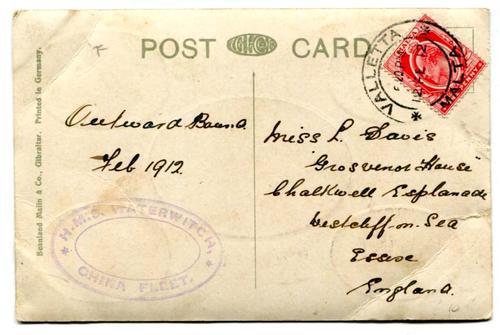 POST CARD
VALLETTA
MALTA
Outward Bound
Feb 1912.
Miss L. Davis
"Grosvenor House"
Chalkwell Esplanade
Westcliff-on-Sea
Essex
England.
H.M.S. WATERWITCH.
CHINA FLEET.
Beanland Malin & Co., Gibraltar. Printed in Germany.